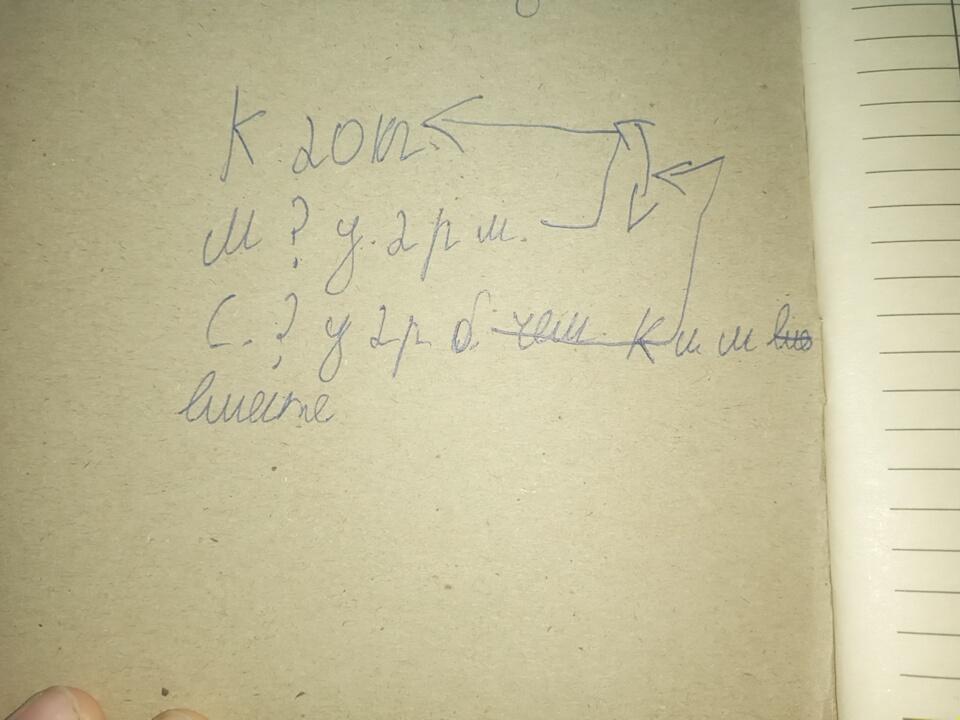 К 20 кг.
М ? у. 2 р м.
С. ? у 2 р б чем К и м
вместе